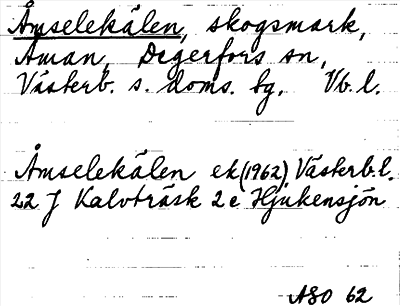 Åmselekälen, skogsmark,
Åman, Degerfors sn,
Västerb. s. doms. bg. Vb. l.
Åmselekälen ek (1962) Västerb. l.
22 J Kalvträsk 2 e Hjukensjön
ASO 62